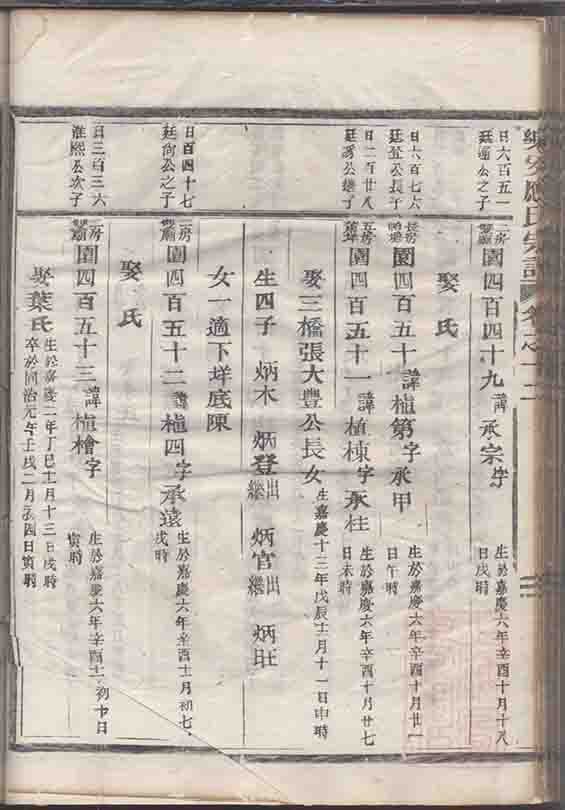 應氏宗譜
卷之十二
日六百五一
廷運公之子
園四百四十九諱承宗字
生於嘉慶六年辛酉十月十八
日戌時
娶 氏
日六百七六
廷登公長子
長房
園四百五十諱植第字承甲
生於嘉慶六年辛酉十月廿一
日午時
日二百廿八
公繼子
園四百五十一諱植棟字承柱
生於嘉慶六年辛酉十月廿七
日未時
娶三橋張大豐公長女
生嘉慶十三年戊辰十二月十一日申時
生四子 炳木 炳登出繼 炳官出繼 炳旺
女一適下垟底陳
日百四十七
廷尚公之子
二房
園四百五十二諱植四字承遠
生於嘉慶六年辛酉十二月初七
戌時
娶 氏
日三百三六
淮熙公次子
二房
園四百五十三諱植檜字
生於嘉慶六年辛酉十二初十日
寅時
娶葉氏
生於嘉慶二年丁巳十一月十三日戌時
卒於同治元年壬戌二月初四日寅時